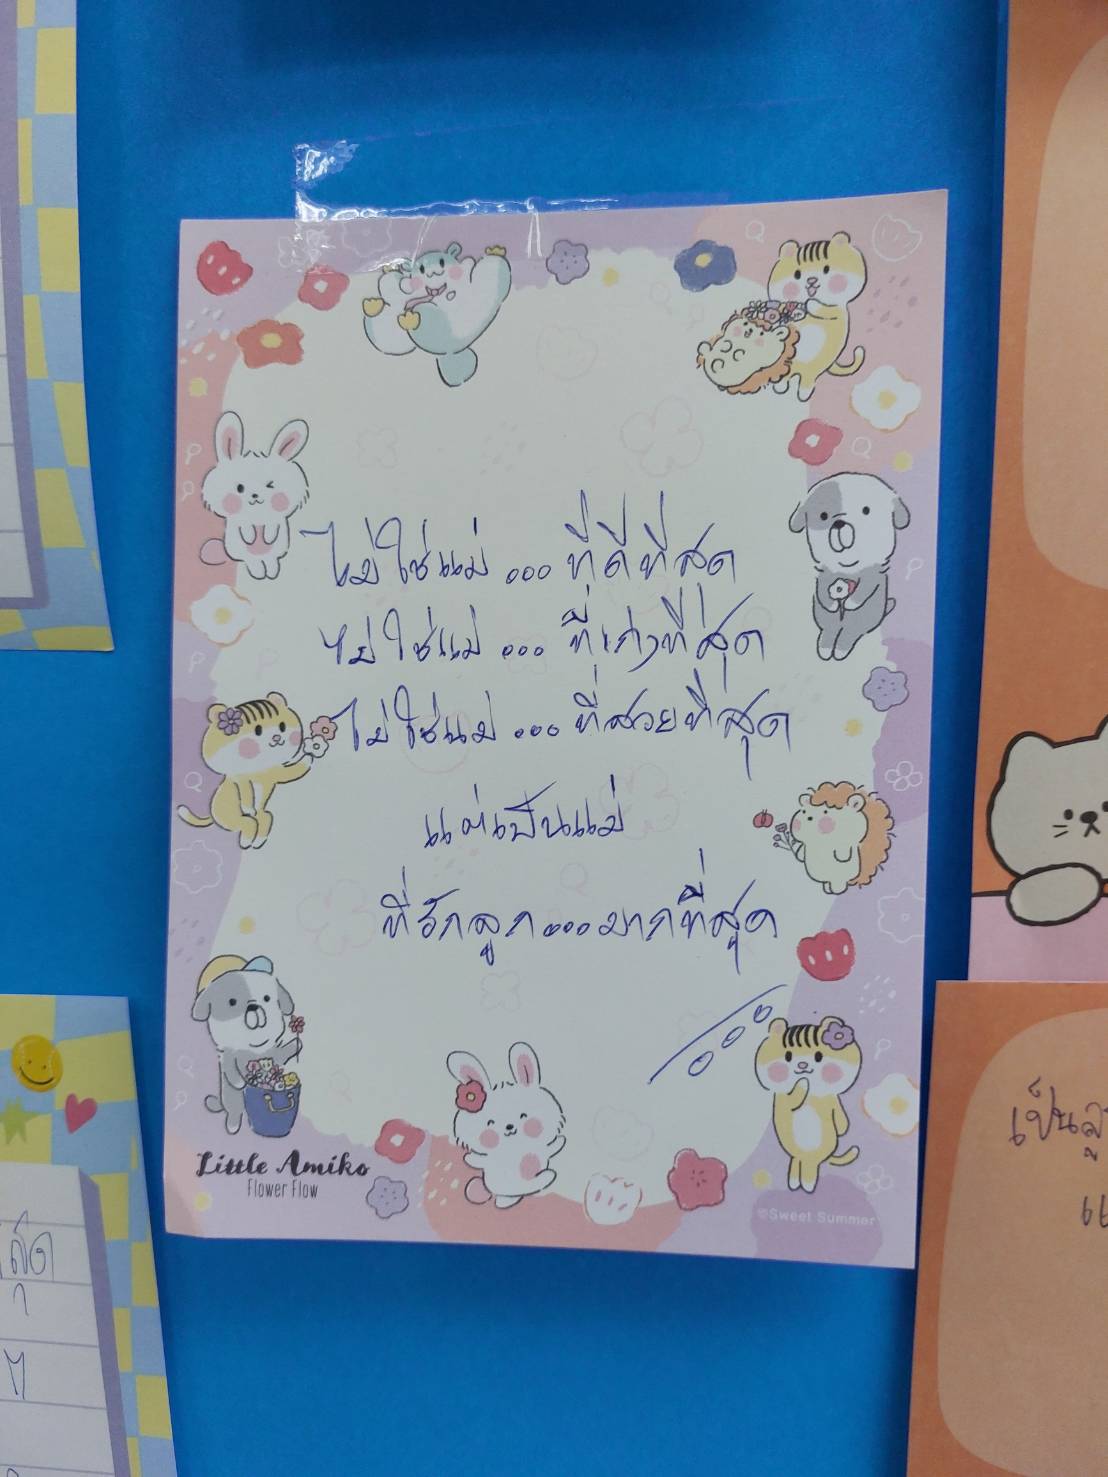 ไม่ใช่แม่...ที่ดีที่สุด
ไม่ใช่แม่...ที่เก่งที่สุด
ไม่ใช่แม่...ที่สวยที่สุด
แต่เป็นแม่
ที่รักลูก...มากที่สุด
Little Amiko
Flower Flow
©Sweet Summer
เป็น